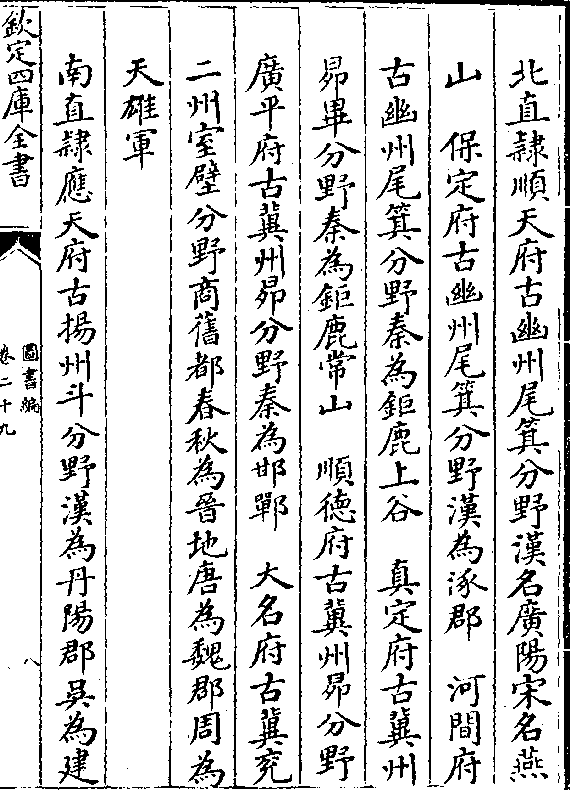 北直隸順天府古幽州尾箕分野漢名廣陽宋名燕
山　保定府古幽州尾箕分野漢為涿郡　河間府
古幽州尾箕分野秦為鉅鹿上谷　真定府古冀州
昴畢分野秦為鉅鹿常山　順德府古冀州昴分野
廣平府古冀州昴分野秦為邯鄲　大名府古冀兖
二州室壁分野商舊都春秋為晉地唐為魏郡周為
天雄軍
南直隸應天府古揚州斗分野漢為丹陽郡吳為建
欽定四庫全書
圖書編
卷二十九
八